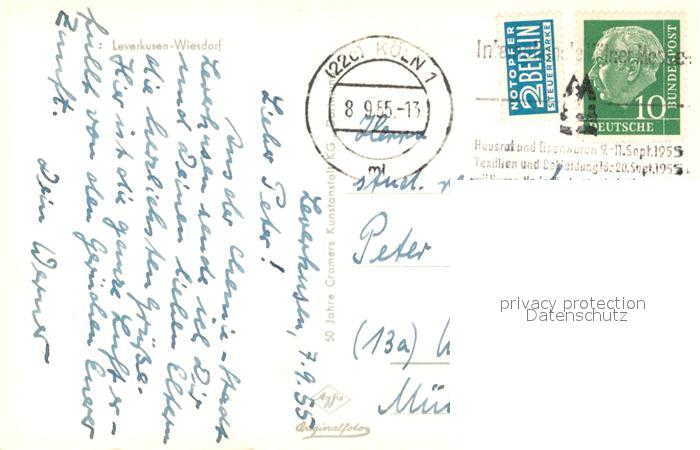 Leverkusen-Wiesdorf
Leverkusen, 7.9.55
Lieber Peter!
Aus der Chemie-Stadt
Leverkusen sende ich Dir
und Deinen lieben Eltern
die herzlichsten Grüße.
Hier ist die ganze Luft er-
füllt von den Gerüchen Eurer
Zunft.
Dein Werner
50 Jahre Cramers Kunstanstalt KG.
Agfa
Originalfoto
(22c) KÖLN 1
8.9.55.-13
ml
NOTOPFER
2 BERLIN
STEUERMARKE
10
DEUTSCHE
BUNDESPOST
Hausrat und Eisenwaren 9.-11.Sept.1955
Textilien und Bekleidung 18.-20.Sept.1955
Herrn
stud.
Peter
(13a)
privacy protection
Datenschutz